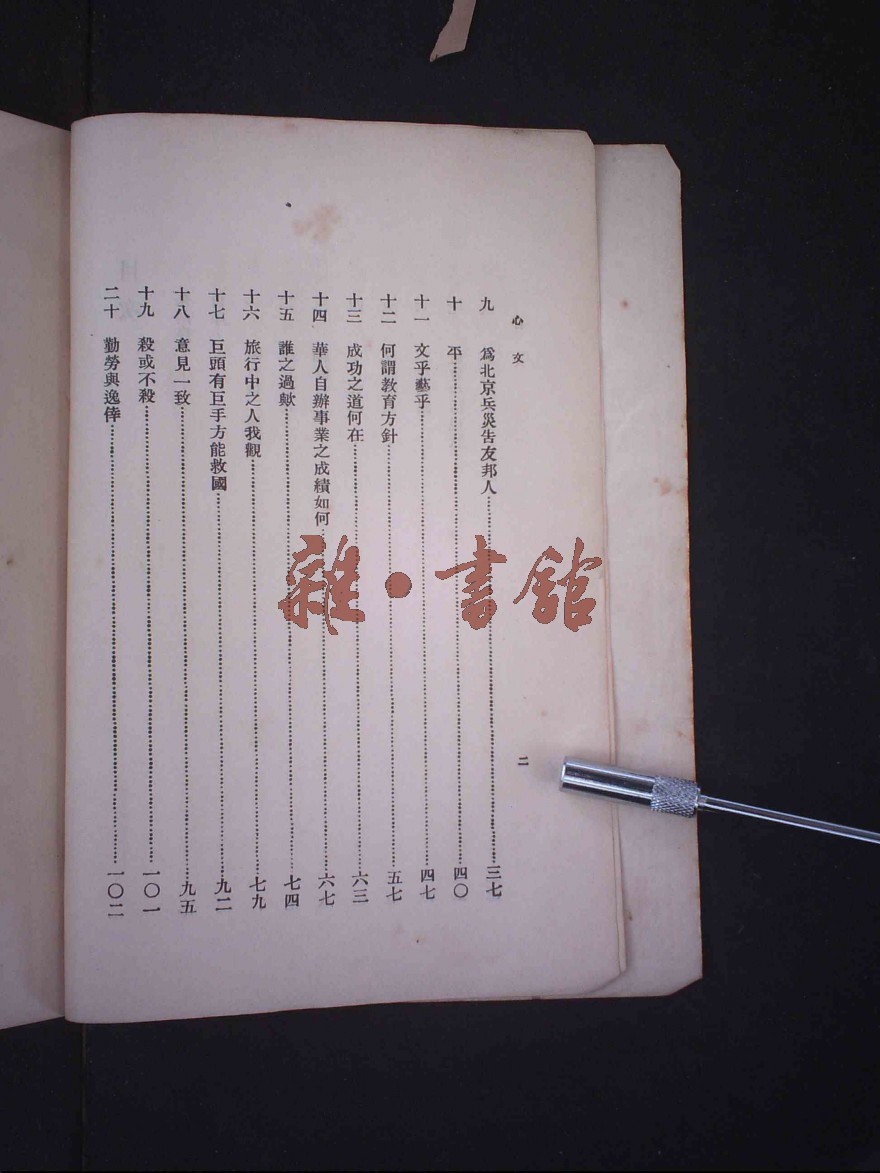 心文
二
九 爲北京兵災告友邦人 三七
十 平 四〇
十一 文乎藝乎 四七
十二 何謂教育方針 五七
十三 成功之道何在 六三
十四 華人自辦事業之成績如何 六七
十五 誰之過歟 七四
十六 旅行中之人我觀 七九
十七 巨頭有巨手方能救國 九二
十八 意見一致 九五
十九 殺或不殺 一〇一
二十 勤勞與逸倖 一〇二
雜·書館